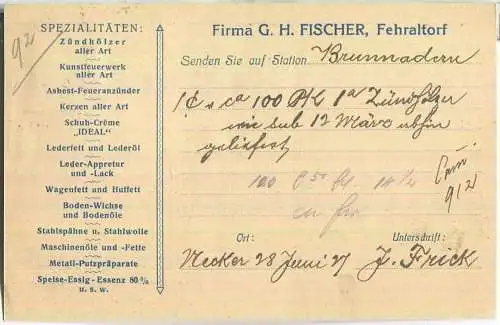 SPEZIALITÄTEN:
Zündhölzer
aller Art
Kunstfeuerwerk
aller Art
Asbest-Feueranzünder
Kerzen aller Art
Schuh-Crème
„IDEAL"
Lederfett und Lederöl
Leder-Appretur
und -Lack
Wagenfett und Huffett
Boden-Wichse
und Bodenöle
Stahlspähne u. Stahlwolle
Maschinenöle und -Fette
Metall-Putzpräparate
Speise-Essig-Essenz 80%
u. s. w.
92
Firma G. H. FISCHER, Fehraltorf
Senden Sie auf Station Brunnadern
ca 100 1a Zündhölzer
wie sub 12 März abhin
geliefert
912
100
Ort: Unterschrift:
Necker 28 Juni 27 J. Frick